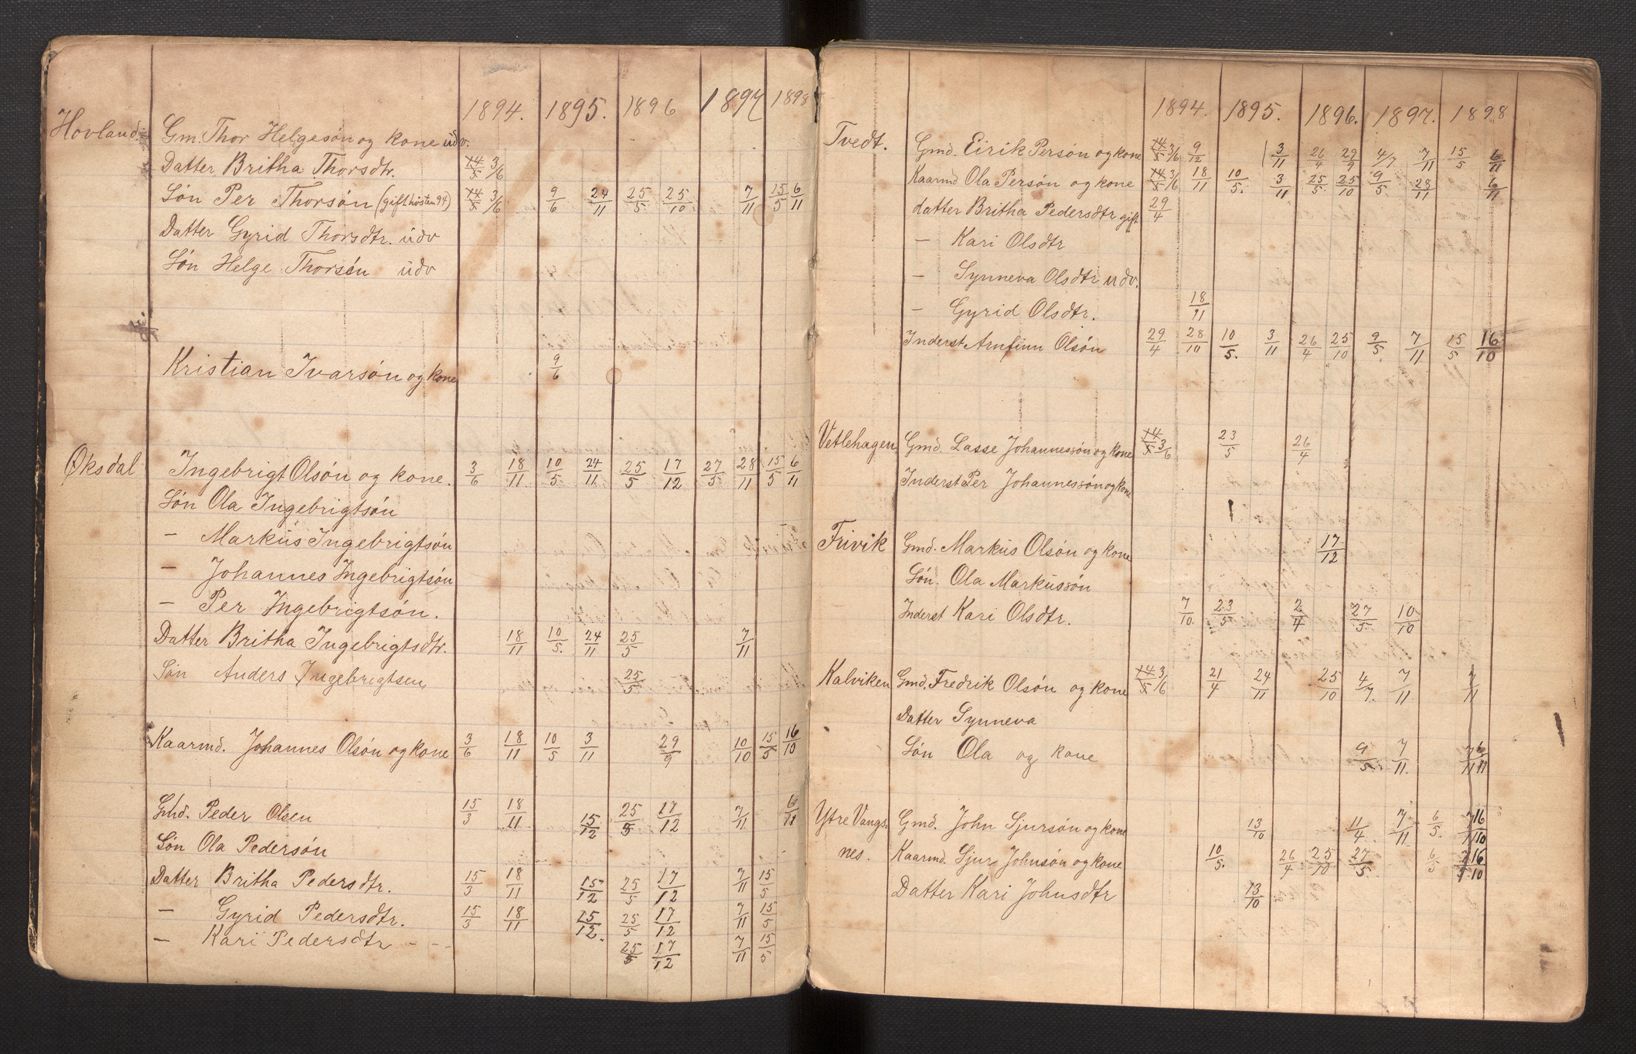 1894. 1895. 1896 1897 1898
Hovland Gm. Thor Helgesøn og kone udv.
Datter Britha Thorsdtr. 14/5 3/6
Søn Per Thorsøn (gift høsten 94) 14/5 3/6 9/6 24/11 25/5 25/10 7/11 15/5 6/11
Datter Gyrid Thorsdtr. udv
Søn Helge Thorsøn udv
Kristian Ivarsøn og kone 9/6
Øksdal Ingebrigt Olsøn og kone. 3/6 18/11 10/5 24/11 25/5 17/12 27/5 28/11 15/5 6/11
Søn Ola Ingebrigtsøn
— Markus Ingebrigtsøn
— Johannes Ingebrigtsøn
— Per Ingebrigtsøn.
Datter Britha Ingebrigtsdtr. 18/11 10/5. 24/11 25/5 7/11
Søn Anders Ingebrigtsen 25/5
Kaarmd. Johannes Olsøn og kone 3/6 18/11 10/5 3/11 29/9 10/10 15/5 16/10
Gmd. Peder Olsen 15/3 18/11 15/12 25/5 17/12 7/11 6/11
Søn Ola Pedersøn
Datter Britha Pedersdtr. 15/3 18/11 15/12 25/5 17/12 7/11 15/5
— Gyrid Pedersdtr. 15/3 18/11 15/12. 25/5 17/12 7/11 15/5
— Kari Pedersdtr - - - 25/5 17/12 7/11 15/5
1894. 1895. 1896. 1897. 1898
Tvedt. Gmd. Eirik Persøn og kone 14/5 3/6 9/12 3/11 26/4 29/9 4/7 7/11 15/5 6/11
Kaarmd Ola Persøn og kone 14/5 3/6 18/11 10/5. 3/11 25/5 25/10 9/5 28/11 6/11
Datter Britha Pedersdtr gift 29/4
— Kari Olsdtr
— Synneva Olsdtr udv.
— Gyrid Olsdtr. 18/11
Inderst Arnfinn Olsøn 29/4 28/10 10/5. 3/11 26/4 25/10 9/5. 7/11 15/5 16/10
Vetlehagen Gmd. Lasse Johannessøn og kone 14/5 3/6 23/5 26/4
Inderst Per Johannessøn og kone
Frivik Gmd. Markus Olsøn og kone 17/12
Søn. Ola Markussøn
Inderst Kari Olsdtr. 7/10 23/5 2/4 27/5 10/10
Kalviken Gmd. Fredrik Olsøn og kone 14/5 3/6 21/4 24/11 25/10 4/7 7/11 7/11
Datter Synneva
Søn Ola og kone 9/5 7/11. 7/11 6/11
Ytre Vangs- Gmd. John Sjursøn og kone 13/10 11/4 7/11 6/5. 7/11 16/10
nes. Kaarmd. Sjur Johnsøn og kone 10/5. 26/4 25/10 27/5 6/5 16/10
Datter Kari Johnsdtr 13/10